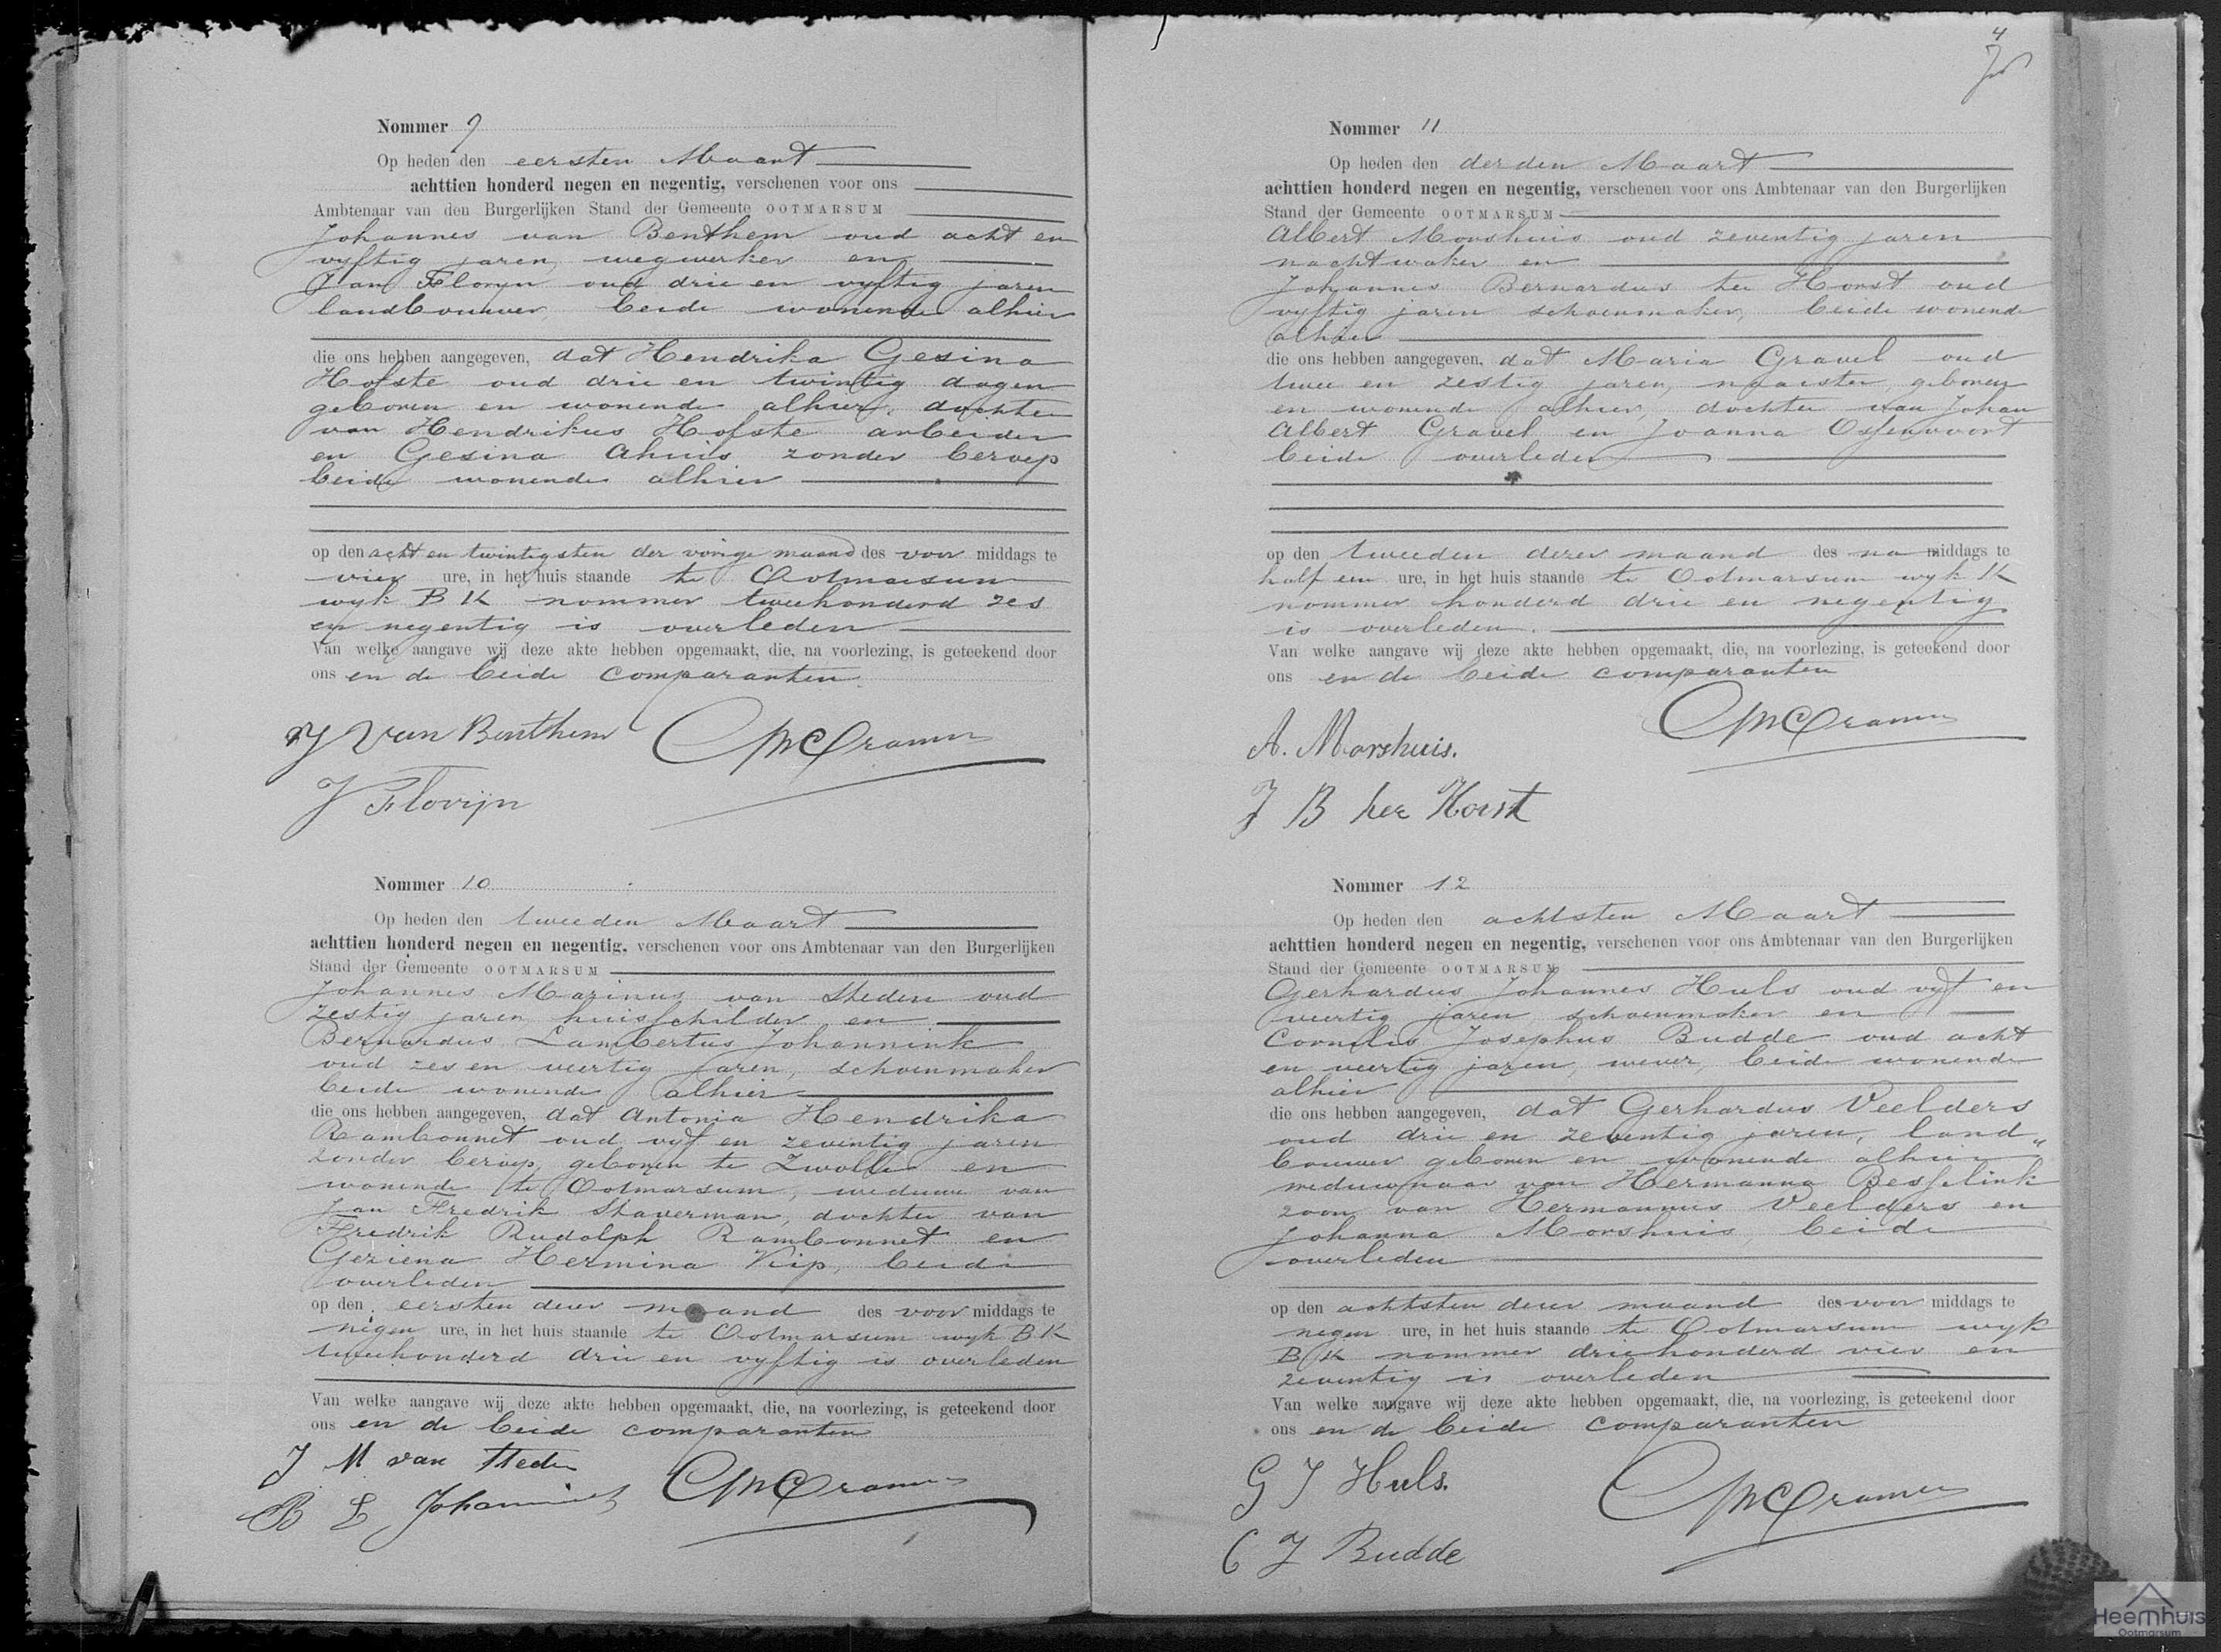 Nommer 9
Op heden den eersten Maart
achttien honderd negen en negentig, verschenen voor ons
Ambtenaar van den Burgerlijken Stand der Gemeente OOTMARSUM
Johannes van Benthem oud acht en
vyftig jaren, wegwerker en
Jan Floryn oud drie en vyftig jaren
landbouwer, beide wonende alhier
die ons hebben aangegeven, dat Hendrika Gesina
Hofste oud drie en twintig dagen
geboren en wonende alhier, dochter
van Hendrikus Hofste arbeider
en Gesina Ahuis zonder beroep
beide wonende alhier
op den acht en twintigsten der vorige maand des voor middags te
vier ure, in het huis staande te Ootmarsum
wyk B K nommer tweehonderd zes
en negentig is overleden
Van welke aangave wij deze akte hebben opgemaakt, die, na voorlezing, is geteekend door
ons en de beide comparanten.
J van Benthem
J Florijn
Nommer 10
Op heden den tweeden Maart
achttien honderd negen en negentig, verschenen voor ons Ambtenaar van den Burgerlijken
Stand der Gemeente OOTMARSUM
Johannes Marinus van Steden oud
zestig jaren huisschilder en
Bernardus Lambertus Johannink
oud zes en veertig jaren, schoenmaker
beide wonende alhier
die ons hebben aangegeven, dat Antonia Hendrika
Rambonnet oud vyf en zeventig jaren
zonder beroep, geboren te Zwolle en
wonende te Ootmarsum, weduwe van
Jan Fredrik Staverman, dochter van
Fredrik Rudolph Rambonnet en
Geziena Hermina Kip, beide
overleden
op den eersten dezer maand des voor middags te
negen ure, in het huis staande te Ootmarsum wyk B K
tweehonderd drie en vyftig is overleden
Van welke aangave wij deze akte hebben opgemaakt, die, na voorlezing, is geteekend door
ons en de beide comparanten
J M van Steden
B L Johannink
4
Nommer 11
Op heden den derden Maart
achttien honderd negen en negentig, verschenen voor ons Ambtenaar van den Burgerlijken
Stand der Gemeente OOTMARSUM
Albert Morshuis oud zeventig jaren
nachtwaker en
Johannes Bernardus ter Horst oud
vyftig jaren schoenmaker, beide wonende
alhier
die ons hebben aangegeven, dat Maria Gravel oud
twee en zestig jaren, naaister, geboren
en wonende alhier, dochter van Johan
Albert Gravel en Joanna Ossenvoort
beide overleden
op den tweeden dezer maand des na middags te
half een ure, in het huis staande te Ootmarsum wyk K
nommer honderd drie en negentig
is overleden.
Van welke aangave wij deze akte hebben opgemaakt, die, na voorlezing, is geteekend door
ons en de beide comparanten
A. Morshuis.
J B ter Horst
Nommer 12
Op heden den achtsten Maart
achttien honderd negen en negentig, verschenen voor ons Ambtenaar van den Burgerlijken
Stand der Gemeente OOTMARSUM
Gerhardus Johannes Huls oud vyf en
veertig jaren, schoenmaker en
Cornelis Josephus Budde oud acht
en veertig jaren, wever, beide wonende
alhier
die ons hebben aangegeven, dat Gerhardus Veelders
oud drie en zeventig jaren, land„
bouwer geboren en wonende alhier
weduwnaar van Hermanna Besselink
zoon van Hermannus Veelders en
Johanna Morshuis, beide
overleden
op den achtsten dezer maand des voor middags te
negen ure, in het huis staande te Ootmarsum wyk
B K nommer driehonderd vier en
zeventig is overleden
Van welke aangave wij deze akte hebben opgemaakt, die, na voorlezing, is geteekend door
ons en de beide comparanten
G J Huls.
C J Budde
Heemhuis
Ootmarsum